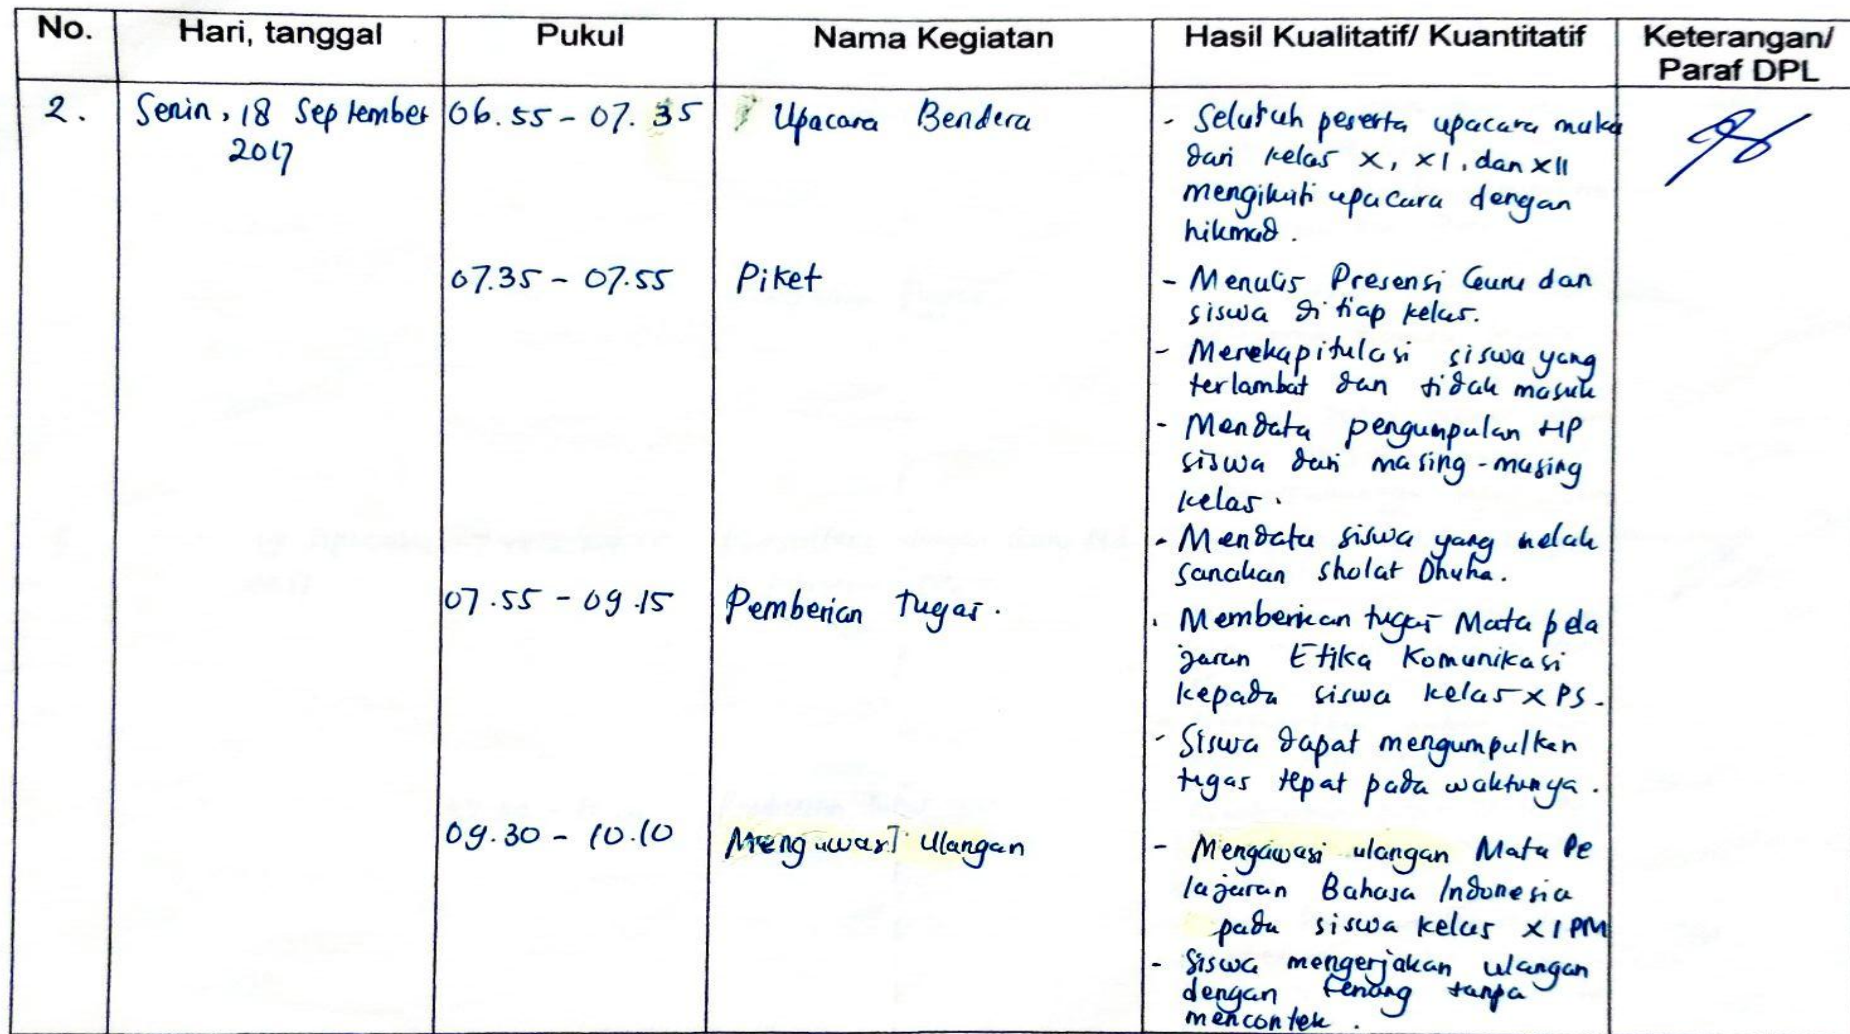 No. Hari, tanggal Pukul Nama Kegiatan Hasil Kualitatif/ Kuantitatif Keterangan/
Paraf DPL
2. Senin, 18 September 06.55 - 07.35 Upacara Bendera - Seluruh peserta upacara mulai
2017 dari kelas X, XI, dan XII
mengikuti upacara dengan
hikmad.
07.35 - 07.55 Piket - Menulis Presensi Guru dan
siswa di tiap kelas.
- Merekapitulasi siswa yang
terlambat dan tidak masuk
- Mendata pengumpulan HP
siswa dari masing-masing
kelas.
- Mendata siswa yang melak
sanakan sholat Dhuha.
07.55 - 09.15 Pemberian Tugas. - Memberikan tugas Mata pela
jaran Etika Komunikasi
kepada siswa kelas X PS.
- Siswa dapat mengumpulkan
tugas tepat pada waktunya.
09.30 - 10.10 Mengawasi Ulangan - Mengawasi ulangan Mata Pe
lajaran Bahasa Indonesia
pada siswa kelas XI PM
- Siswa mengerjakan ulangan
dengan tenang tanpa
mencontek.